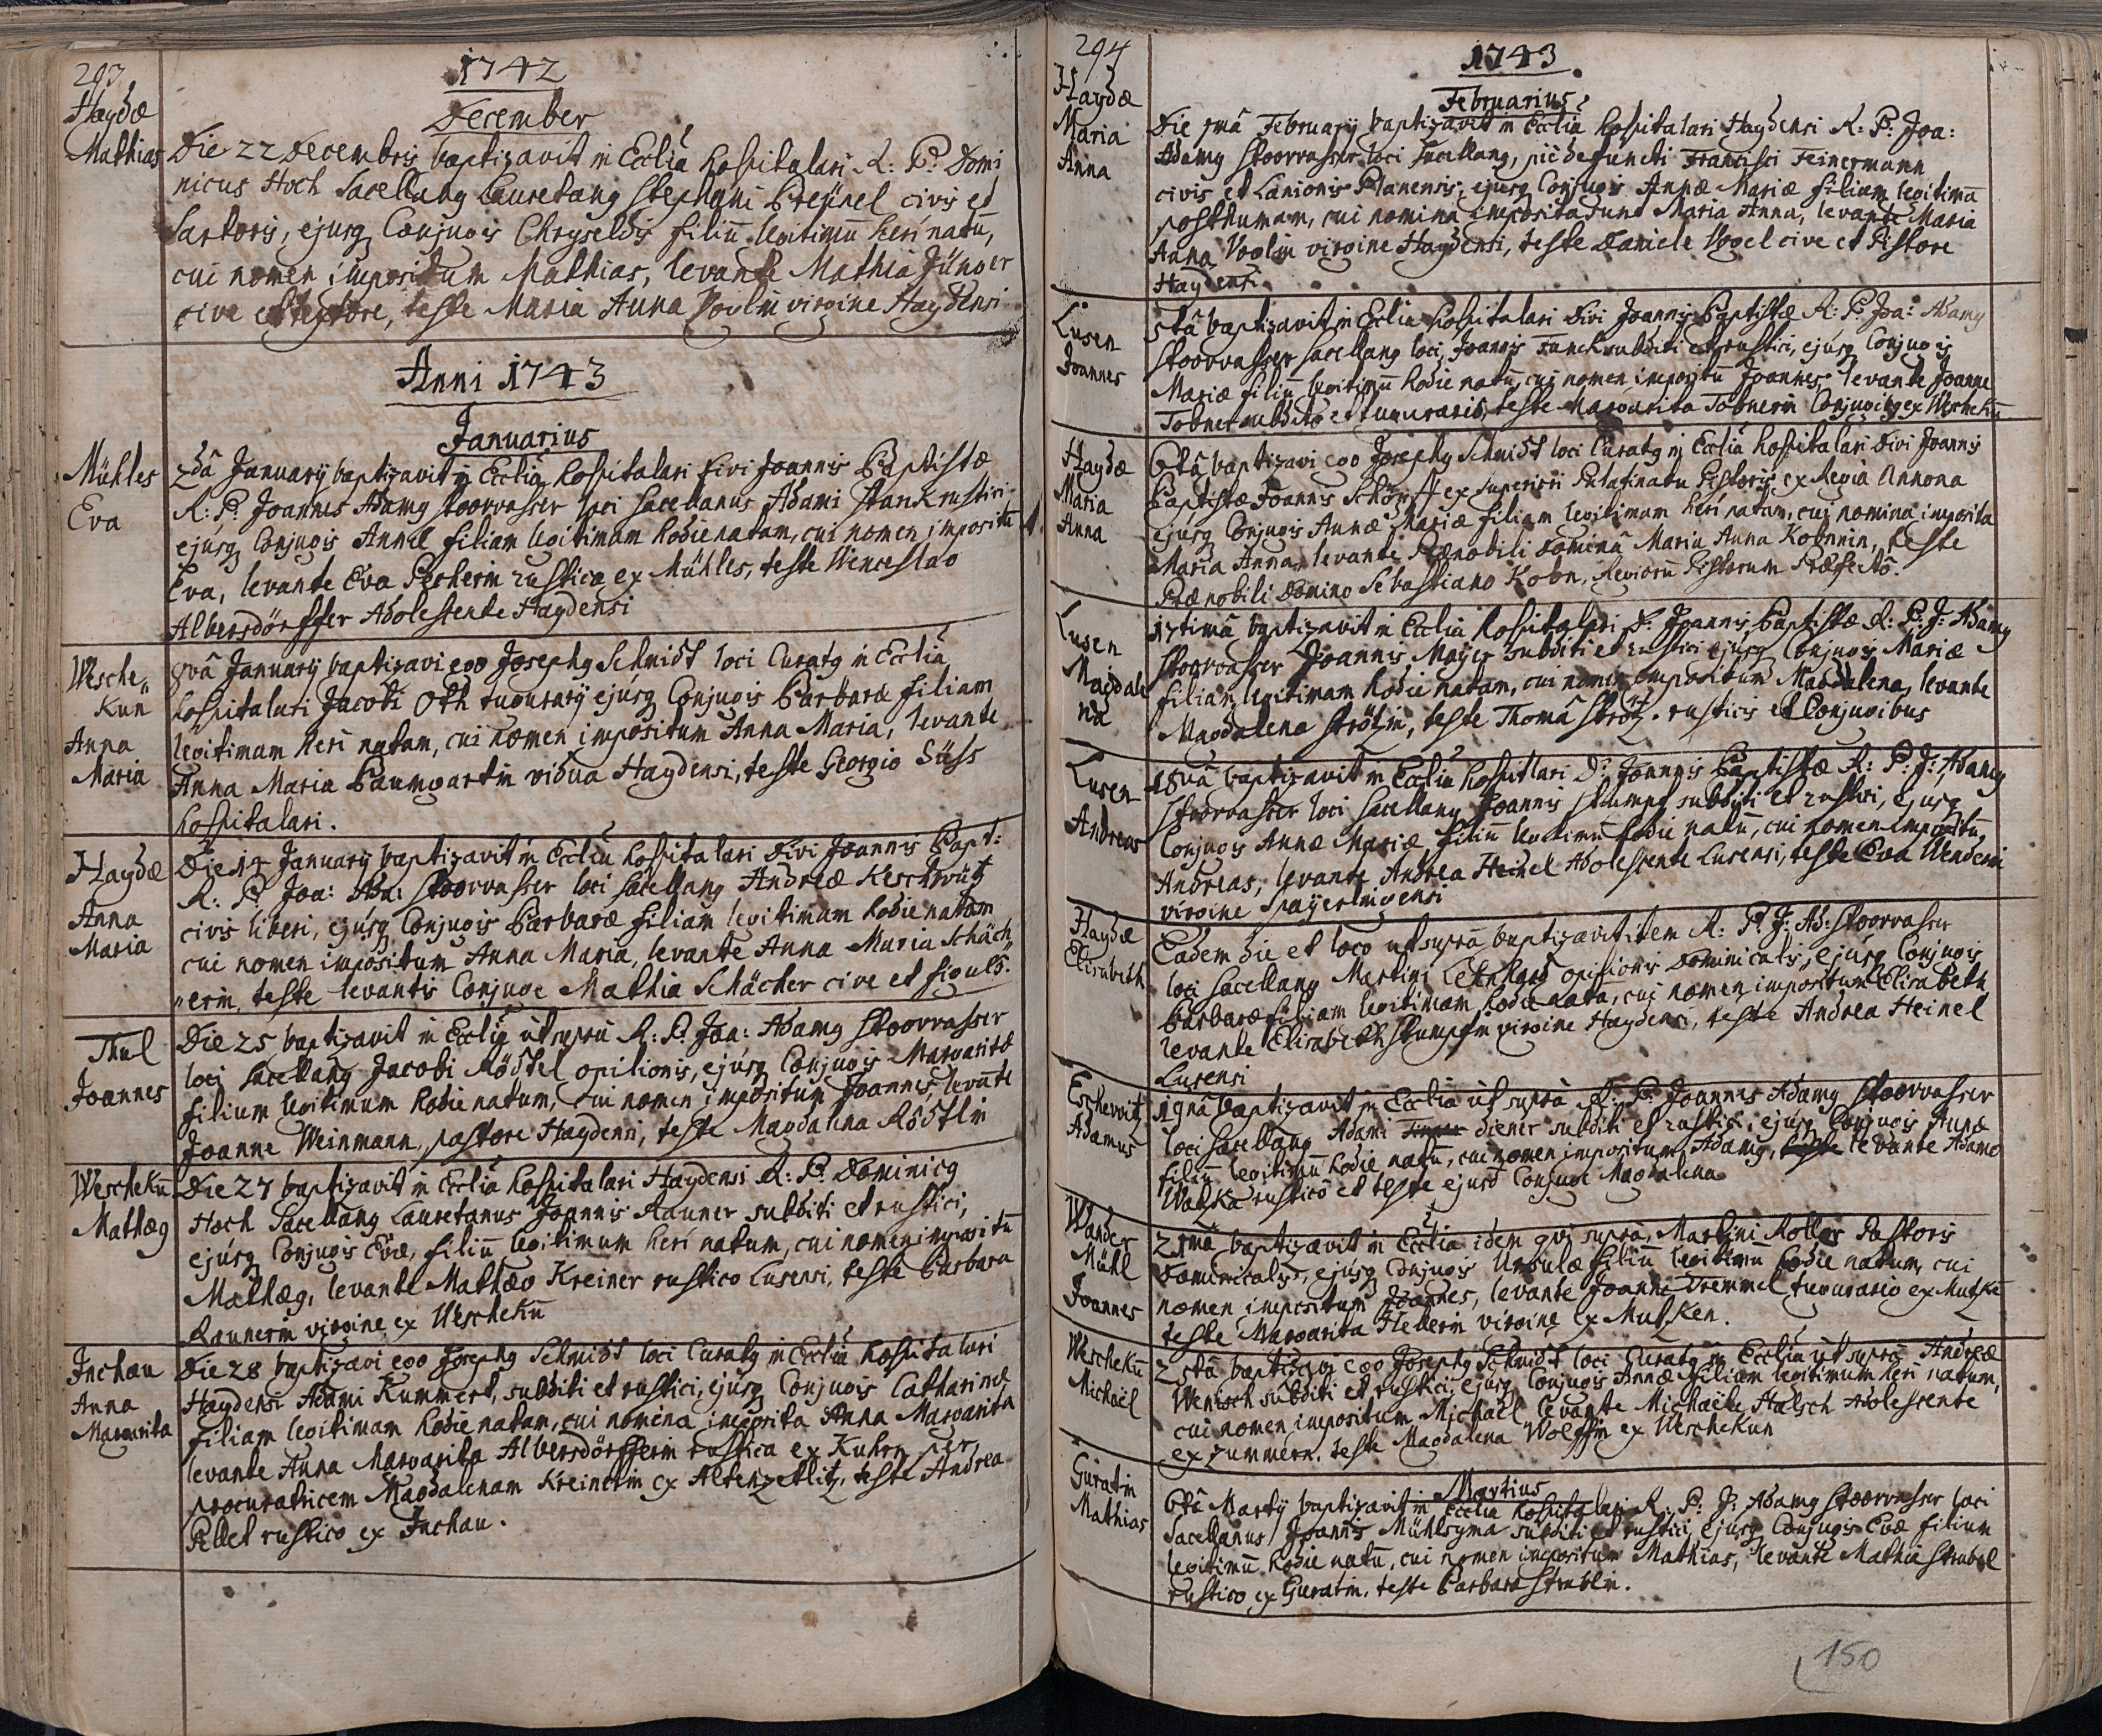 293
1742
December
Haydæ
Mathias
Die 22 Decembris baptizavit in Ecclia hospitalari R: P: Domi
nicus Hoch Sacellang Lauretang Stephani Preÿnel civis et
Sartoris, ejusq Conjugis Chryseldis filiū legitimū heri natū,
cui nomen impositum Mathias, levante Mathia Jünger
cive et textore, teste Maria Anna Voglin virgine Haydensi
Anni 1743
Januarius
Mühles
Eva
2dâ Januarÿ baptizavit in Ecclia hospitalari Divi Joannis Baptistæ
R: P: Joannes Adamg Stoorvasser loci Sacellanus Adami Stank rustici
ejusq Conjugis Annæ filiam legitimam hodie natam, cui nomen impositū
Eva, levante Eva Pecherin rustica ex Mühles, teste Wenceslao
Albersdörffer Adolescente Haydensi
Wesche„
Kun
Anna
Maria
8vâ Januarÿ baptizavi ego Josephg Schmidt loci Curatg in Ecclia
hospitalari Jacobi Oth tugurarÿ ejusq Conjugis Barbaræ filiam
legitimam heri natam, cui nomen impositum Anna Maria, levante
Anna Maria Baumgartin vidua Haydensi, teste Georgio Süss
hospitalari.
Haydæ
Anna
Maria
Die 14 Januarÿ baptizavit in Ecclia hospitalari Divi Joannis Bapt:
R: P: Joa: Ada: Stoorvasser loci Sacellang Andreæ Keschwitz
civis liberi, ejusq Conjugis Barbaræ filiam legitimam hodie natam
cui nomen impositum Anna Maria, levante Anna Maria Schäch„
„erin, teste levantis Conjuge Mathia Schächer cive et figulo.
Thul
Joannes
Die 25 baptizavit in Ecclia ut supra R: P: Joa: Adamg Stoorvasser
loci Sacellang Jacobi Rödtel opilionis, ejusq Conjugis Margaritæ
filium legitimum hodie natum, cui nomen impositum Joannes, levante
Joanne Weinmann, pastore Haydensi, teste Magdalena Rödtlin
Weschekū
Mathæg
Die 27 baptizavit in Ecclia hospitalari Haydensi R: P: Dominicg
Hoch Sacellang Lauretanus Joannis Rauner subditi et rustici,
ejusq Conjugis Evæ, filiū legitimum heri natum, cui nomen impositū
Mathæg, levante Mathæo Kreiner rustico Lusensi, teste Barbara
Raunerin virgine ex Weschekū
Inchau
Anna
Margarita
Die 28 baptizavi ego Josephg Schmidt loci Curatg in Ecclia hospitalari
Haydensi Adami Kummert, subditi et rustici, ejusq Conjugis Catharinæ
filiam legitimam hodie natam, cui nomina imposita Anna Margarita
levante Anna Margarita Albersdörfferin rustica ex Kuhrn per
procuratricem Magdalenam Kreinerin ex Altenzetlitz, teste Andrea
Pellet rustico ex Inchau.
294
1743
Februarius
Haydæ
Maria
Anna
Die 5mâ Februarÿ baptizavit in Ecclia hospitalari Haydensi R: P: Joa:
Adamg Stoorvasser loci Sacellang, piè defuncti Francisci Feinermann
civis et Lanionis Planensis, ejusq Conjugis Annæ Mariæ filiam legitimā
posthumam, cui nomina imposita sunt Maria Anna, levante Maria
Anna Voglin virgine Haydensi, teste Daniele Vogel cive et Pistore
Haydensi
Lusen
Joannes
5tâ baptizavit in Ecclia hospitalari Divi Joannis Baptistæ R: P: Joa: Adamg
Stoorvasser Sacellang loci, Joannis Funck subditi et rustici, ejusq Conjugis
Mariæ filiū legitimū hodie natū, cui nomen impositū Joannes levante Joanne
Tobner subdito et tugurario, teste Margarita Tobnerin Conjugibg ex Weschekū
Haydæ
Maria
Anna
6tâ baptizavi ego Josephg Schmidt loci Curatg in Ecclia hospitalari Divi Joannis
Baptistæ Joannis Schönfl ex superiori Palatinatu Pistoris ex Regia Annona
ejusq Conjugis Annæ Mariæ filiam legitimam heri natam, cui nomina imposita
Maria Anna, levante Prænobili Dominâ Maria Anna Kobnin, teste
Prænobili Domino Sebastiano Kobn, Regiorū Pistorum Præfecto.
Lusen
Magdale
na
17timâ baptizavit in Ecclia hospitalari D: Joannis Baptistæ R: P: J: Adamg
Stoorvasser Joannis Mayer subditi et rustici ejusq Conjugis Mariæ
filiam legitimam hodie natam, cui nomen impositum Magdalena, levante
Magdalena Strötzin, teste Thomâ Strötz. rusticis et Conjugibus
Lusen
Andreas
18vâ baptizavit in Ecclia hospitlari D: Joannis Baptistæ R: P: J: Adamg
Stoorvasser loci Sacellang Joannis Stumpf subditi et rustici, ejusq
Conjugis Annæ Mariæ filiū legitimū hodie natū, cui nomen impositū
Andreas, levante Andrea Heinel Adolescente Lusensi, teste Eva Wenderin
virgine Spaÿerlingensi
Haydæ
Elisabeth
Eadem die et loco ut supra baptizavit item R: P: J: Ad: Stoorvasser
loci Sacellang Martini Lehnhard opilionis Dominicalis, ejusq Conjugis
Barbaræ filiam legitimam hodie nata, cui nomen impositum Elisabeth
levante Elisabeth Stumpfin virgine Haydensi, teste Andrea Heinel
Lusensi
Eschewitz
Adamus
19nâ baptizavit in Ecclia ut supra R: P: Joannes Adamg Stoorvasser
loci Sacellang Adami diener subditi et rustici, ejusq Conjugis Annæ
filiū legitimū hodie natū, cui nomen impositum Adamg, teste levante Adamo
Watzka rustico et teste ejusd Conjuge Magdalena
Wander
Mühl
Joannes
21mâ baptizavit in Ecclia idem qui supra, Martini Roller Pastoris
Dominicalis, ejusq Conjugis Ursulæ filiū legitimū hodie natum, cui
nomen impositum Joannes, levante Joanne Tremmel tugurario ex Mutzkē
teste Margarita Hellerin virgine ex Mutzken.
Weschekū
Michaël
25tâ baptizavi ego Josephg Schmidt loci Curatg in Ecclia ut supra Andreæ
Wenisch subditi et rustici, ejusq Conjugis Annæ filium legitimum heri natum,
cui nomen impositum Michaël levante Michaële Halsch Adolescente
ex Zummern. teste Magdalena Wolffin ex Weschekun
Martius
Guratin
Mathias
6tâ Martÿ baptizavit in Ecclia hospitalari R: P: J: Adamg Stoorvasser loci
Sacellanus Joannis Mühlsyma subditi et rustici, ejusq Conjugis Evæ filium
legitimū hodie natū, cui nomen impositum Mathias, levante Mathia Strubel
rustico ex Guratin. teste Barbara Strublin.
150